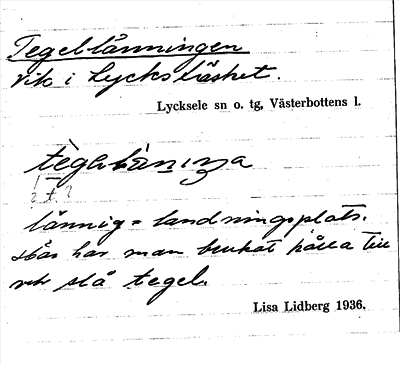 Tegellänningen
vik i Lycksträsket.
Lycksele sn o. tg, Västerbottens l.
lännig = landningsplats.
där har man brukat hålla till
och slå tegel.
Lisa Lidberg 1936.